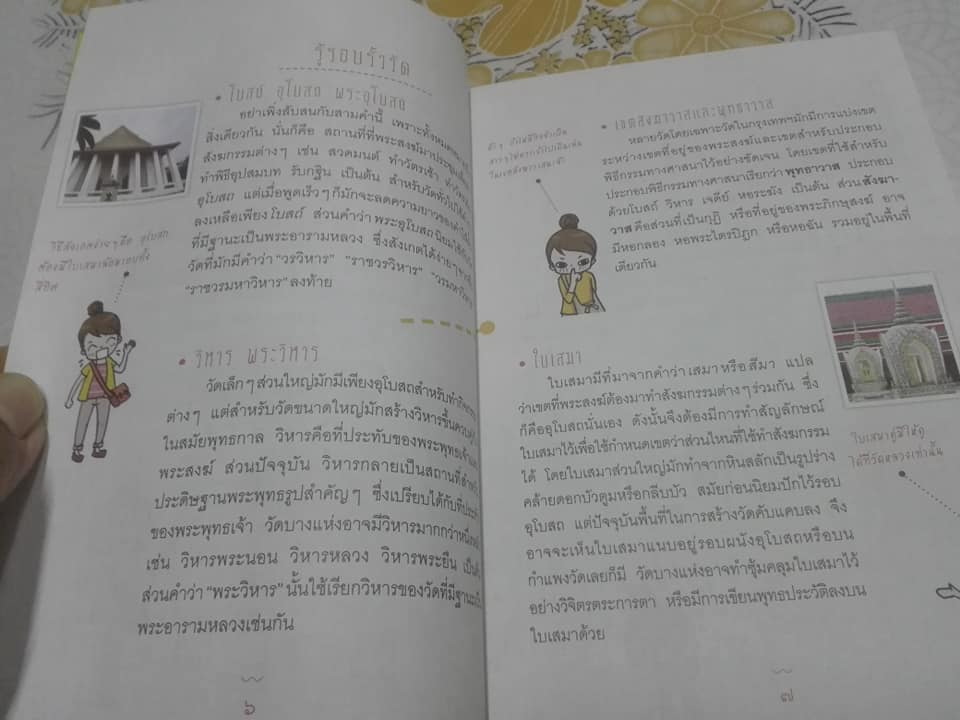 รู้รอบรั้ววัด
• โบสถ์ อุโบสถ พระอุโบสถ
อย่าเพิ่งสับสนกับสามคำนี้ เพราะทั้งหมดคือ
สิ่งเดียวกัน นั่นก็คือ สถานที่ที่พระสงฆ์มาประชุม
สังฆกรรมต่างๆ เช่น สวดมนต์ ทำวัตรเช้า
ทำพิธีอุปสมบท รับกฐิน เป็นต้น สำหรับวัดทั่วไป
อุโบสถ แต่เมื่อพูดเร็วๆ ก็มักจะลดความยาวของคำ
ลงเหลือเพียง โบสถ์ ส่วนคำว่า พระอุโบสถ นิยมใช้กับ
ที่มีฐานะเป็นพระอารามหลวง ซึ่งสังเกตได้ง่ายๆ
วัดที่มักมีคำว่า "วรวิหาร" "ราชวรวิหาร" "วรมหาวิหาร"
"ราชวรมหาวิหาร" ลงท้าย
วิธีสังเกตง่ายๆ คือ อุโบสถ
ต้องมีใบเสมาล้อมรอบทั้ง
สี่ทิศ
• วิหาร พระวิหาร
วัดเล็กๆ ส่วนใหญ่มักมีเพียงอุโบสถสำหรับทำ
ต่างๆ แต่สำหรับวัดขนาดใหญ่มักสร้างวิหารขึ้น
ในสมัยพุทธกาล วิหารคือที่ประทับของพระพุทธเจ้า
พระสงฆ์ ส่วนปัจจุบัน วิหารกลายเป็นสถานที่
ประดิษฐานพระพุทธรูปสำคัญๆ ซึ่งเปรียบได้กับที่
ของพระพุทธเจ้า วัดบางแห่งอาจมีวิหารมากกว่า
เช่น วิหารพระนอน วิหารหลวง วิหารพระยืน
ส่วนคำว่า "พระวิหาร" นั้นใช้เรียกวิหารของวัดที่มีฐานะ
พระอารามหลวงเช่นกัน
๖
• เขตสังฆาวาสและพุทธาวาส
หลายวัดโดยเฉพาะวัดในกรุงเทพฯ มักมีการแบ่งเขต
ระหว่างเขตที่อยู่ของพระสงฆ์และเขตสำหรับประกอบ
พิธีกรรมทางศาสนาไว้อย่างชัดเจน โดยเขตที่ใช้สำหรับ
ประกอบพิธีกรรมทางศาสนาเรียกว่า พุทธาวาส ประกอบ
ด้วยโบสถ์ วิหาร เจดีย์ หอระฆัง เป็นต้น ส่วน สังฆา-
วาส คือส่วนที่เป็นกุฏิ หรือที่อยู่ของพระภิกษุสงฆ์ อาจ
มีหอกลอง หอพระไตรปิฎก หรือหอฉัน รวมอยู่ในพื้นที่
เดียวกัน
• ใบเสมา
ใบเสมามีที่มาจากคำว่า เสมา หรือ สีมา แปล
ว่าเขตที่พระสงฆ์ต้องมาทำสังฆกรรมต่างๆ ร่วมกัน ซึ่ง
ก็คืออุโบสถนั่นเอง ดังนั้นจึงต้องมีการทำสัญลักษณ์
ใบเสมาไว้เพื่อใช้กำหนดเขตว่าส่วนไหนที่ใช้ทำสังฆกรรม
ได้ โดยใบเสมาส่วนใหญ่มักทำจากหินสลักเป็นรูปร่าง
คล้ายดอกบัวตูมหรือกลีบบัว สมัยก่อนนิยมปักไว้รอบ
อุโบสถ แต่ปัจจุบันพื้นที่ในการสร้างวัดคับแคบลง จึง
อาจจะเห็นใบเสมาแนบอยู่รอบผนังอุโบสถหรือบน
กำแพงวัดเลยก็มี วัดบางแห่งอาจทำซุ้มคลุมใบเสมาไว้
อย่างวิจิตรตระการตา หรือมีการเขียนพุทธประวัติลงบน
ใบเสมาด้วย
ใบเสมาคู่มีให้ดู
ได้ที่วัดหลวงเท่านั้น
๗